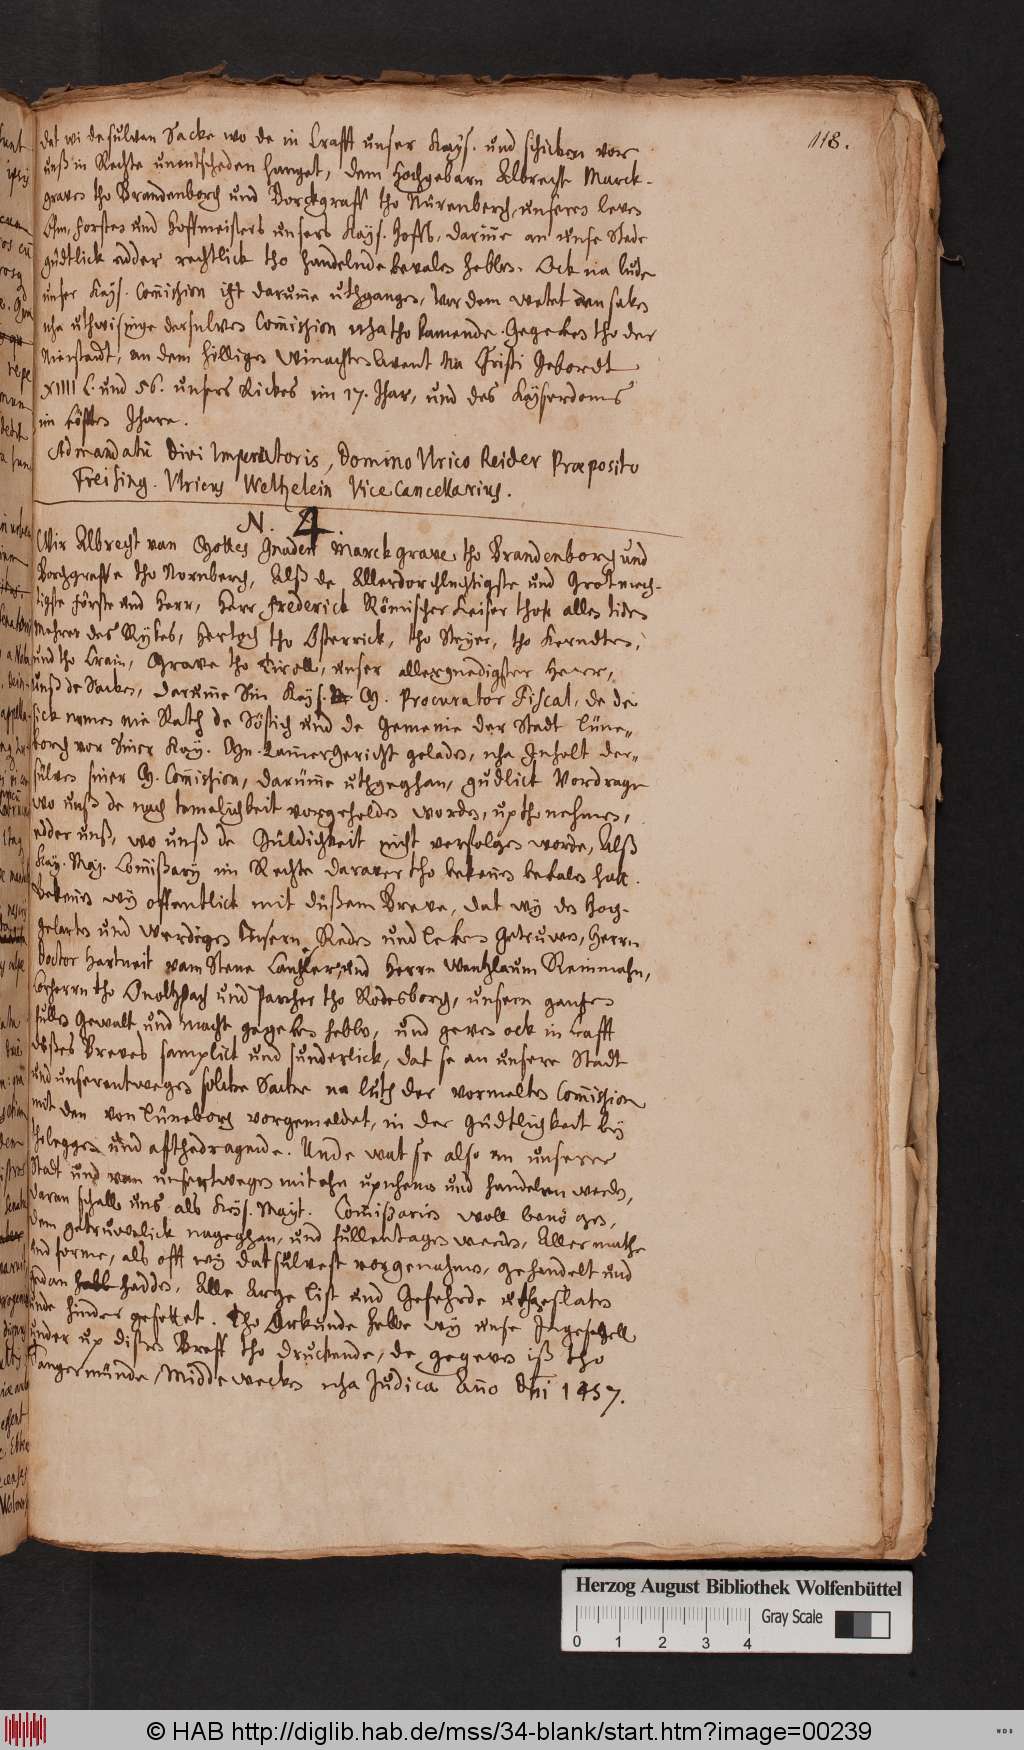 118.
dat wi de sulven Sacke wo de in Crafft unser Kays. und schicken vor
unß in Rechte unentscheden hanget, dem Hochgebarn Albrecht Marck-
graven tho Brandenborch und Borckgraff tho Nürenberch, unsers leven
Ohm, Forsten und Hoffmeisters unsers Kays. Hoffs, darüme an unse Stede
gudtlick edder rechtlick tho handelnde bevalen hebben. Ock na lude
unser Kays. Commission ist darume uthgangen, Vor dem wetet
nha uthwisinge dersulven Commission nhatho kamende. Gegeven tho der
Nienstadt, an dem hilligen Winachten Avent Na Christi Gebordt
XIIII C. und 56. unsers Rickes im 17. Jhar, und des Kayserdoms
im Jhare.
Ad mandatū Divi Imperatoris, Domino Ulrico Reider Præposito
Freising. Ulricus Welhzlein Vice Cancellarius.
N. 4
Wir Albrecht van Gottes Gnaden Marckgrave tho Brandenborch und
Borchgreffe tho Nornberch, Alß de Allerdorchluchtigste und Grotmech-
tigste Förste und Herr, Herr Frederick Römischer Keiser thom allen tiden
Mehrer des Rykes, Hertoch tho Osterrick, tho Steyer, tho Kerndten,
und tho Crain, Grave tho Tiroll, unser allergnedigster Herr,
unß de Saken, darüme Sin Kays. G. Procurator Fiscal, de de
sick nomen nie Rath de Söstich und de Gemeine der Stadt Lüne-
borch vor Siner Kay. Gn. Camergericht geladen, nha Inholt der-
sülven siner G. Commission, darüme uthgeghan, gudlick Vordrage
wo unß de nach temelicheit vorgeholden worden, uptho nehmen,
edder unß, wo unß de Güldicheit nicht verfolgen worde, Alß
Kay. May. Comissary im Rechte daraver tho bekenen bevalen hatt.
Bekenen wy offentlick mit dussem Breve, dat wy den Hoch-
gelarten und werdigen Unsern Reden und leven Getruwen, Herrn
Doctor Hartneit vam Stene Cantzler, und Herrn Wentzlaum Reinmahn,
Corherrn tho Onoltzbach und Parrher tho Rodesborch, unsern gantzen
fullen Gewalt und macht gegeven hebben, und geven ock in Crafft
dußes Breves samptlict und sunderlick, dat se an unsere Stadt
und unserentwegen solcke Sacke na luth der vormelten Commission
mit den von Lüneborch vorgemeldet, in der Gudtlicheit by
tholeggen und affthedragende. Unde wat se also an unserer
Stadt und van unsertwegen mit ehn upnhemen und handelen werden,
daran schall uns als Kays. Mayt. Comissarien woll benögen,
dem getruwelick nageghan, und fullentagen werden, Aller mathe
und forme, als offt wy dat sülvest vorgenahmen, gehandelt und
gedan hebb hadden. Alle Arge list und Gefehrde uthgeslaten
unde hinder gesettet. Tho Orkunde hebbe wy unse Ingesegell
under up dissen Breff tho druckende, de gegeven iß tho
Tangermünde, Middeweckes nha Judica Año Dñi 1457.
Herzog August Bibliothek Wolfenbüttel
0 1 2 3 4
Gray Scale
© HAB http://diglib.hab.de/mss/34-blank/start.htm?image=00239